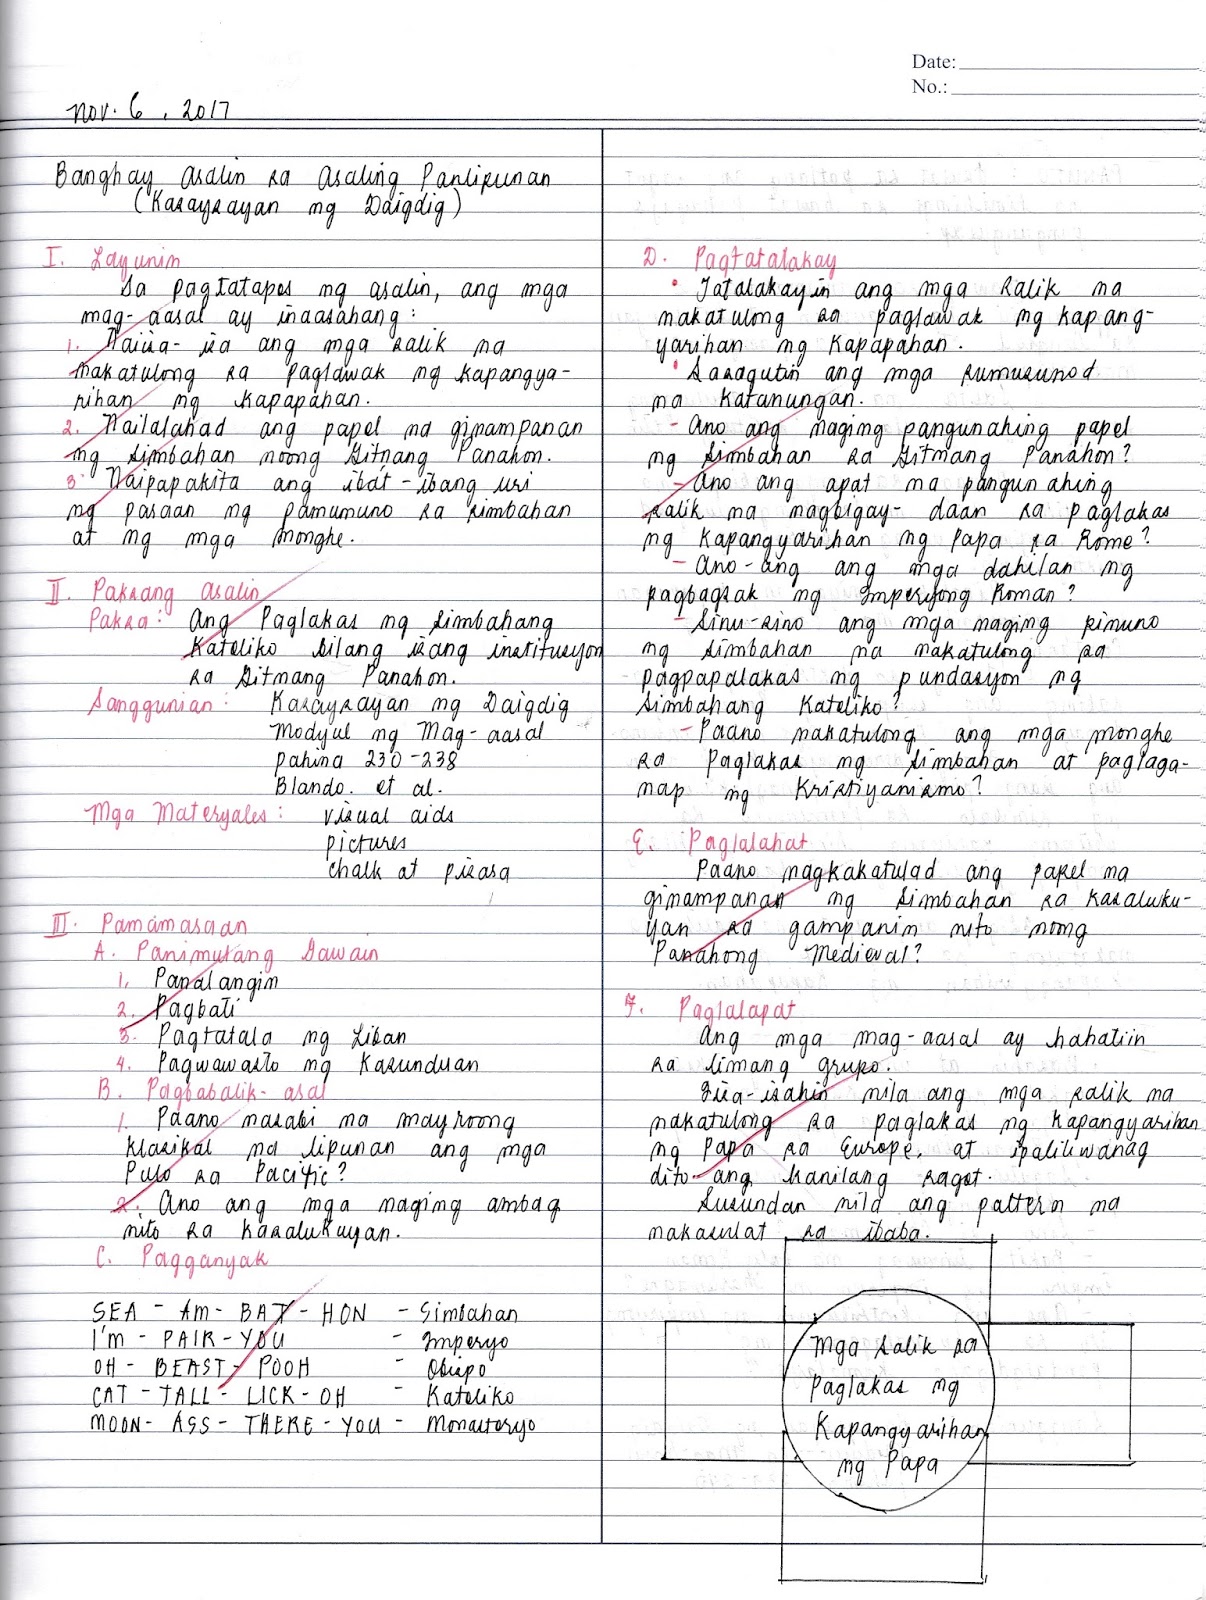 Date:
No.:
Nov. 6, 2017
Banghay Aralin sa Araling Panlipunan
(Kasaysayan ng Daigdig)
I. Layunin
Sa pagtatapos ng aralin, ang mga
mag-aaral ay inaasahang:
1. Naiisa-isa ang mga salik na
nakatulong sa paglawak ng kapangya-
rihan ng Kapapahan.
2. Nailalahad ang papel na ginampanan
ng Simbahan noong Gitnang Panahon.
3. Naipapakita ang ibat-ibang uri
ng paraan ng pamumuno sa simbahan
at ng mga monghe.
II. Paksang Aralin
Paksa: Ang Paglakas ng Simbahang
Katoliko bilang isang institusyon
sa Gitnang Panahon.
Sanggunian: Kasaysayan ng Daigdig
Modyul ng Mag-aaral
pahina 230-238
Blando. et al.
Mga Materyales: visual aids
pictures
chalk at pisara
III. Pamamaraan
A. Panimulang Gawain
1. Panalangin
2. Pagbati
3. Pagtatala ng Liban
4. Pagwawasto ng Kasunduan
B. Pagbabalik-aral
1. Paano nasabi na mayroong
Klasikal na lipunan ang mga
Pulo sa Pacific?
2. Ano ang mga naging ambag
nito sa kasalukuyan.
C. Pagganyak
SEA - AM - BAT - HON - Simbahan
I'm - PAIR - YOU - Imperyo
OH - BEAST - POOH - Obispo
CAT - TALL - LICK - OH - Katoliko
MOON - ASS - THERE - YOU - Monasteryo
D. Pagtatalakay
• Tatalakayin ang mga Salik na
nakatulong sa paglawak ng kapang-
yarihan ng Kapapahan.
• Sasagutin ang mga sumusunod
na Katanungan.
- Ano ang naging pangunahing papel
ng Simbahan sa Gitnang Panahon?
- Ano ang apat na pangunahing
salik na nagbigay-daan sa paglakas
ng Kapangyarihan ng Papa sa Rome?
- Ano-ang ang mga dahilan ng
pagbagsak ng Imperyong Roman?
- Sinu-sino ang mga naging pinuno
ng Simbahan na nakatulong sa
pagpapalakas ng pundasyon ng
Simbahang Katoliko?
- Paano nakatulong ang mga monghe
sa Paglakas ng Simbahan at paglaga-
nap ng Kristiyanismo?
E. Paglalahat
Paano nagkakatulad ang papel na
ginampanan ng Simbahan sa kasaluku-
yan sa gampanin nito noong
Panahong Medieval?
F. Paglalapat
Ang mga mag-aaral ay hahatiin
sa limang grupo.
Iisa-isahin nila ang mga salik na
nakatulong sa paglakas ng Kapangyarihan
ng Papa sa Europe, at ipaliliwanag
dito ang kanilang sagot.
Susundan nila ang pattern na
nakasulat sa ibaba.
Mga Salik sa
Paglakas ng
Kapangyarihan
ng Papa